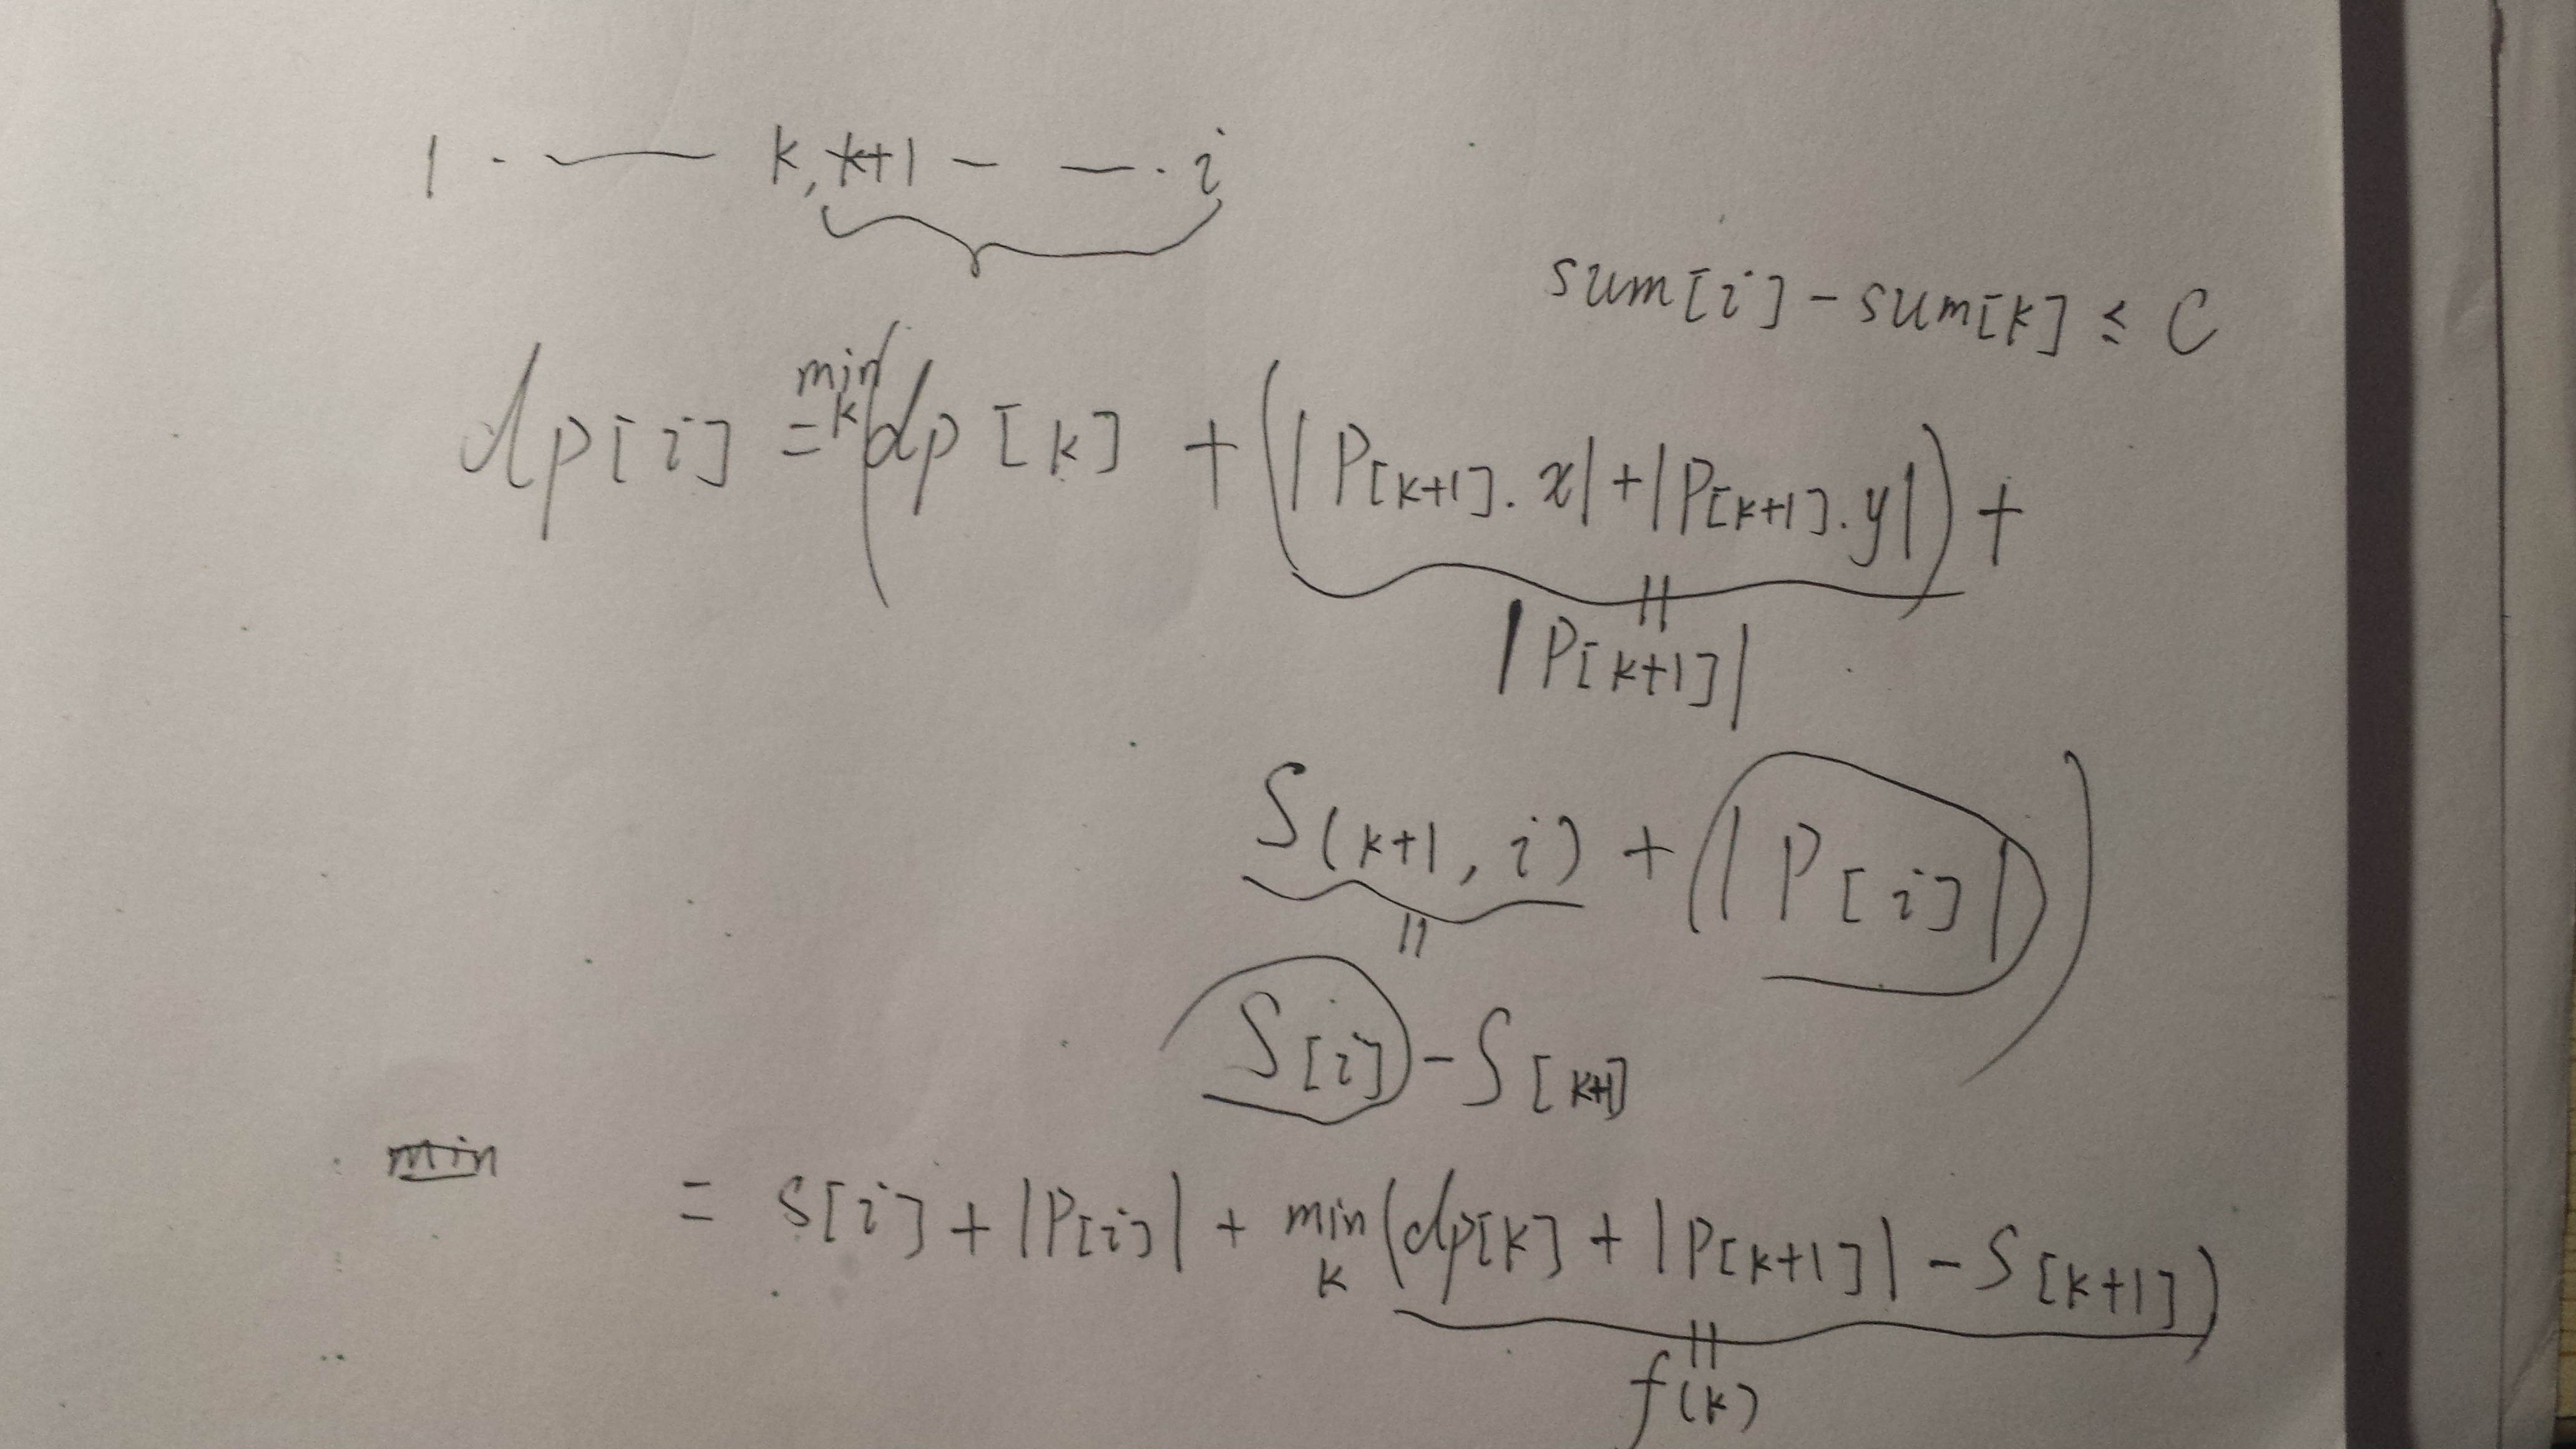 1 . —— k, k+1 — — . i
sum[i] - sum[k] ≤ C
dp[i] = min k (dp[k] + (|P[k+1].x| + |P[k+1].y|) +
||
|P[k+1]|
S(k+1, i) + (|P[i]|)
||
S[i] - S[k+1]
min
= S[i] + |P[i]| + min k (dp[k] + |P[k+1]| - S[k+1])
||
f(k)